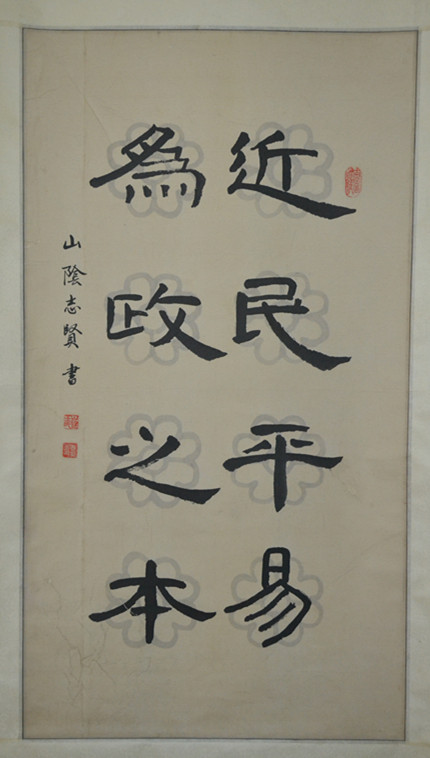 近民平易
為政之本
山陰志賢書